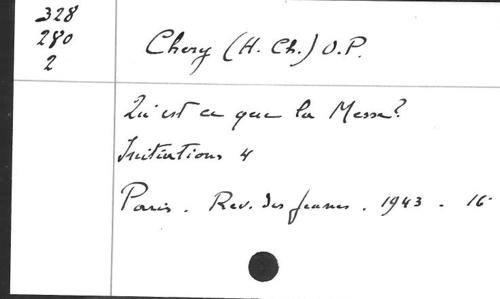 328
280
2
Chery (H. Ch.) O.P.
Qu'est ce que la Messe?
Initiations 4
Paris. Rev. des Jeunes. 1943 - 16°